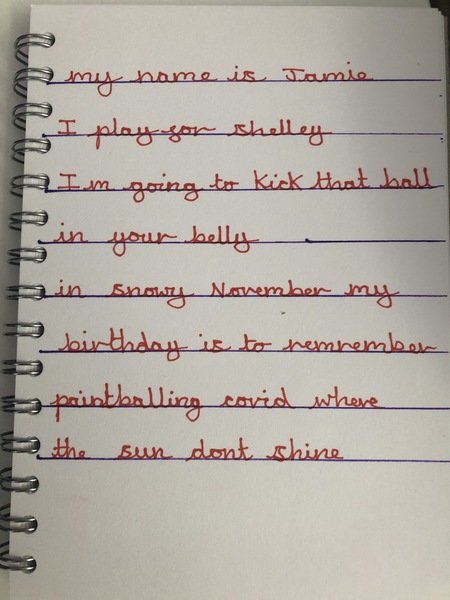 my name is Jamie
I play for shelley
I m going to kick that ball
in your belly
in snowy November my
birthday is to remrember
paintballing covid where
the sun dont shine